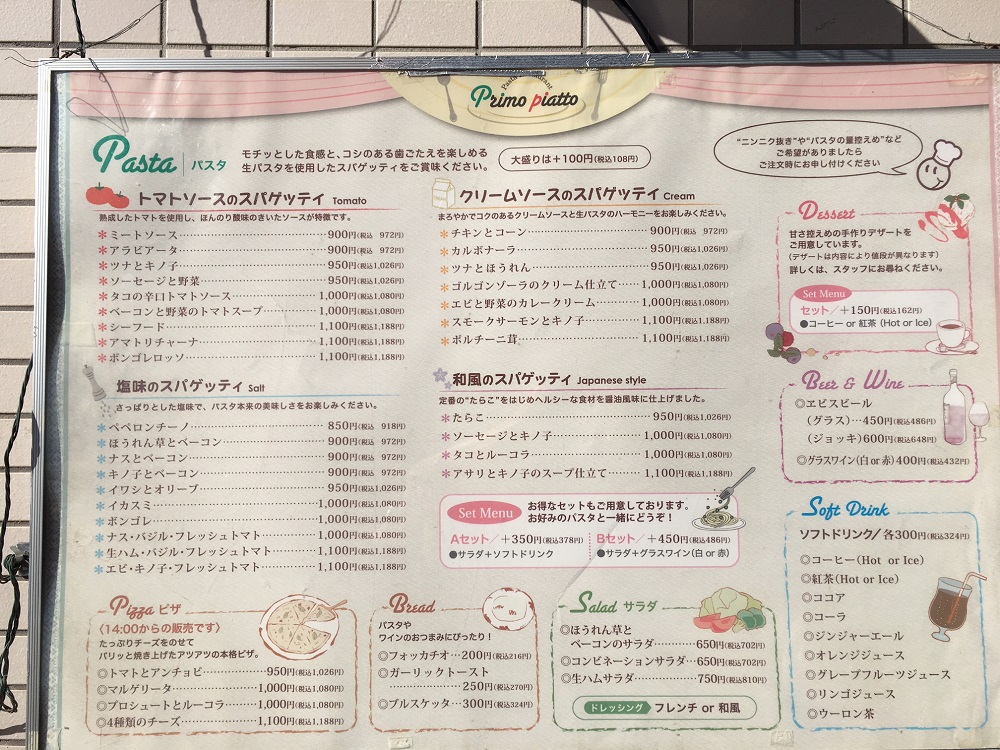 Primo piatto
Pasta パスタ
モチッとした食感と、コシのある歯ごたえを楽しめる
生パスタを使用したスパゲッティをご賞味ください。
大盛りは+100円(税込108円)
“ニンニク抜き”や“パスタの量控えめ”など
ご希望がありましたら
ご注文時にお申し付けください
トマトソースのスパゲッティ Tomato
熟成したトマトを使用し、ほんのり酸味のきいたソースが特徴です。
*ミートソース 900円(税込 972円)
*アラビアータ 900円(税込 972円)
*ツナとキノ子 950円(税込1,026円)
*ソーセージと野菜 950円(税込1,026円)
*タコの辛口トマトソース 1,000円(税込1,080円)
*ベーコンと野菜のトマトスープ 1,000円(税込1,080円)
*シーフード 1,100円(税込1,188円)
*アマトリチャーナ 1,100円(税込1,188円)
*ボンゴレロッソ 1,100円(税込1,188円)
塩味のスパゲッティ Salt
さっぱりとした塩味で、パスタ本来の美味しさをお楽しみください。
*ペペロンチーノ 850円(税込 918円)
*ほうれん草とベーコン 900円(税込 972円)
*ナスとベーコン 900円(税込 972円)
*キノ子とベーコン 900円(税込 972円)
*イワシとオリーブ 950円(税込1,026円)
*イカスミ 1,000円(税込1,080円)
*ボンゴレ 1,000円(税込1,080円)
*ナス・バジル・フレッシュトマト 1,000円(税込1,080円)
*生ハム・バジル・フレッシュトマト 1,100円(税込1,188円)
*エビ・キノ子・フレッシュトマト 1,100円(税込1,188円)
クリームソースのスパゲッティ Cream
まろやかでコクのあるクリームソースと生パスタのハーモニーをお楽しみください。
*チキンとコーン 900円(税込 972円)
*カルボナーラ 950円(税込1,026円)
*ツナとほうれん 950円(税込1,026円)
*ゴルゴンゾーラのクリーム仕立て 1,000円(税込1,080円)
*エビと野菜のカレークリーム 1,000円(税込1,080円)
*スモークサーモンとキノ子 1,100円(税込1,188円)
*ポルチーニ茸 1,100円(税込1,188円)
和風のスパゲッティ Japanese style
定番の“たらこ”をはじめヘルシーな食材を醤油風味に仕上げました。
*たらこ 950円(税込1,026円)
*ソーセージとキノ子 1,000円(税込1,080円)
*タコとルーコラ 1,000円(税込1,080円)
*アサリとキノ子のスープ仕立て 1,100円(税込1,188円)
Set Menu
お得なセットもご用意しております。
お好みのパスタと一緒にどうぞ！
Aセット/+350円(税込378円)
●サラダ+ソフトドリンク
Bセット/+450円(税込486円)
●サラダ+グラスワイン(白 or 赤)
Dessert
甘さ控えめの手作りデザートを
ご用意しています。
(デザートは内容により値段が異なります)
詳しくは、スタッフにお尋ねください。
Set Menu
セット/+150円(税込162円)
●コーヒー or 紅茶(Hot or Ice)
Beer & Wine
◎エビスビール
(グラス)…450円(税込486円)
(ジョッキ)600円(税込648円)
◎グラスワイン(白 or 赤)400円(税込432円)
Soft Drink
ソフトドリンク/各300円(税込324円)
◎コーヒー(Hot or Ice)
◎紅茶(Hot or Ice)
◎ココア
◎コーラ
◎ジンジャーエール
◎オレンジジュース
◎グレープフルーツジュース
◎リンゴジュース
◎ウーロン茶
Pizza ピザ
〈14:00からの販売です〉
たっぷりチーズをのせて
パリッと焼き上げたアツアツの本格ピザ。
◎トマトとアンチョビ 950円(税込1,026円)
◎マルゲリータ 1,000円(税込1,080円)
◎プロシュートとルーコラ 1,000円(税込1,080円)
◎4種類のチーズ 1,100円(税込1,188円)
Bread
パスタや
ワインのおつまみにぴったり！
◎フォッカチオ…200円(税込216円)
◎ガーリックトースト
250円(税込270円)
◎ブルスケッタ…300円(税込324円)
Salad サラダ
◎ほうれん草と
ベーコンのサラダ 650円(税込702円)
◎コンビネーションサラダ…650円(税込702円)
◎生ハムサラダ 750円(税込810円)
ドレッシング フレンチ or 和風